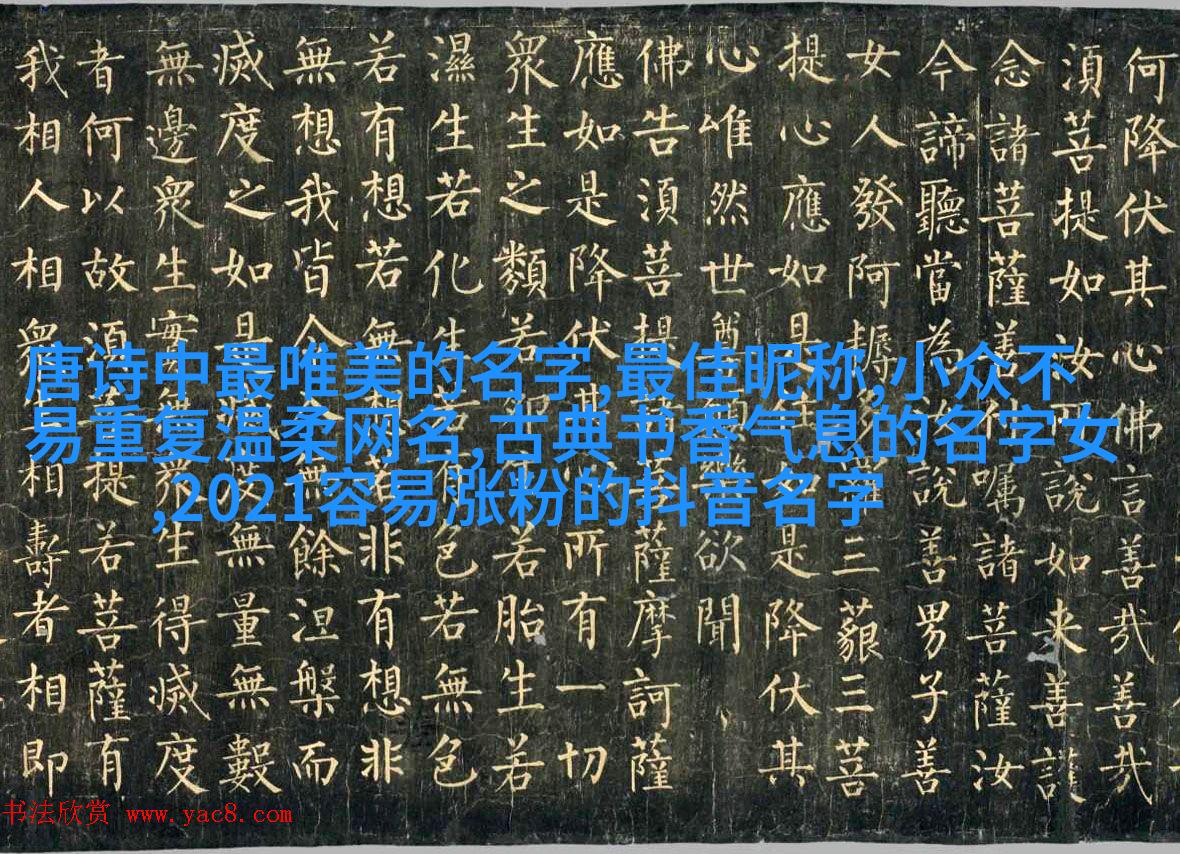 何降伏其心佛言善哉善哉
須菩提如汝所說如来善護
念諸菩薩善付囑諸菩薩汝
今諦聽當為汝說善男子善
女人發阿耨多羅三藐三菩
提心應如是住如是降伏其
心唯然世尊願樂欲聞
佛告須菩提諸菩薩摩訶薩
應如是降伏其心所有一切
眾生之類若卵生若胎生若
濕生若化生若有色若無色
若有想若無想若非有想非
無想我皆令入無餘涅槃而
滅度之如是滅度無量無數
無邊眾生實無眾生得滅度
者何以故須菩提若菩薩有
我相人相眾生相壽者相即
唐诗中最唯美的名字,最佳昵称,小众不
易重复温柔网名,古典书香气息的名字女
,2021容易涨粉的抖音名字
书法欣赏 www.yac8.com